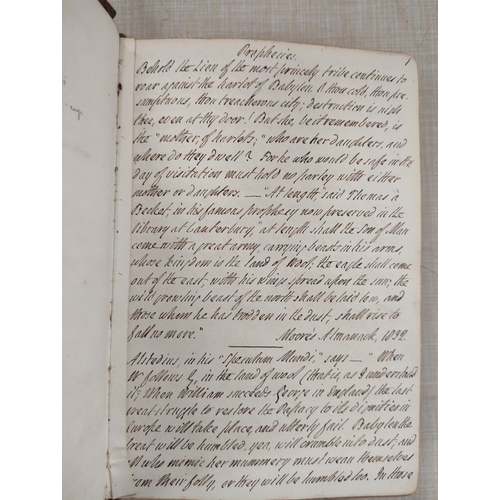 Prophecies. 1
Behold the Lion of the most princely tribe continues to
roar against the harlot of Babylon. O thou cold, thou pre-
sumptuous, thou treacherous city; destruction is nigh
thee, even at thy door! But she, be it remembered, is
the "mother, of harlots;" who are her daughters, and
where do they dwell? For he who would be safe in the
day of visitation must hold no parley with either
mother or daughters. — "At length," said Thomas à
Becket, in his famous prophecy now preserved in the
library at Canterbury, "at length shall the Son of Man
come with a great army, carrying beads in his arms,
whose kingdom is the land of Wool; the eagle shall come
out of the east, with his wings spread upon the sun; the
wild growling beast of the north shall be laid low, and
those whom he has trodden in the dust, shall rise to
fall no more."
Moore's Almanack, 1832
Alstedius, in his "Speculum Mundi," says — "When
W follows G, in the land of wool (that is, as I understand
it, When William succeeds George in England) the last
great struggle to restore the Papacy to its dignities in
Europe will take place, and utterly fail. Babylon the
Great will be humbled, yea, will crumble into dust; and
all who mimic her mummery must wean themselves
from their folly, or they will be humbled too. In those